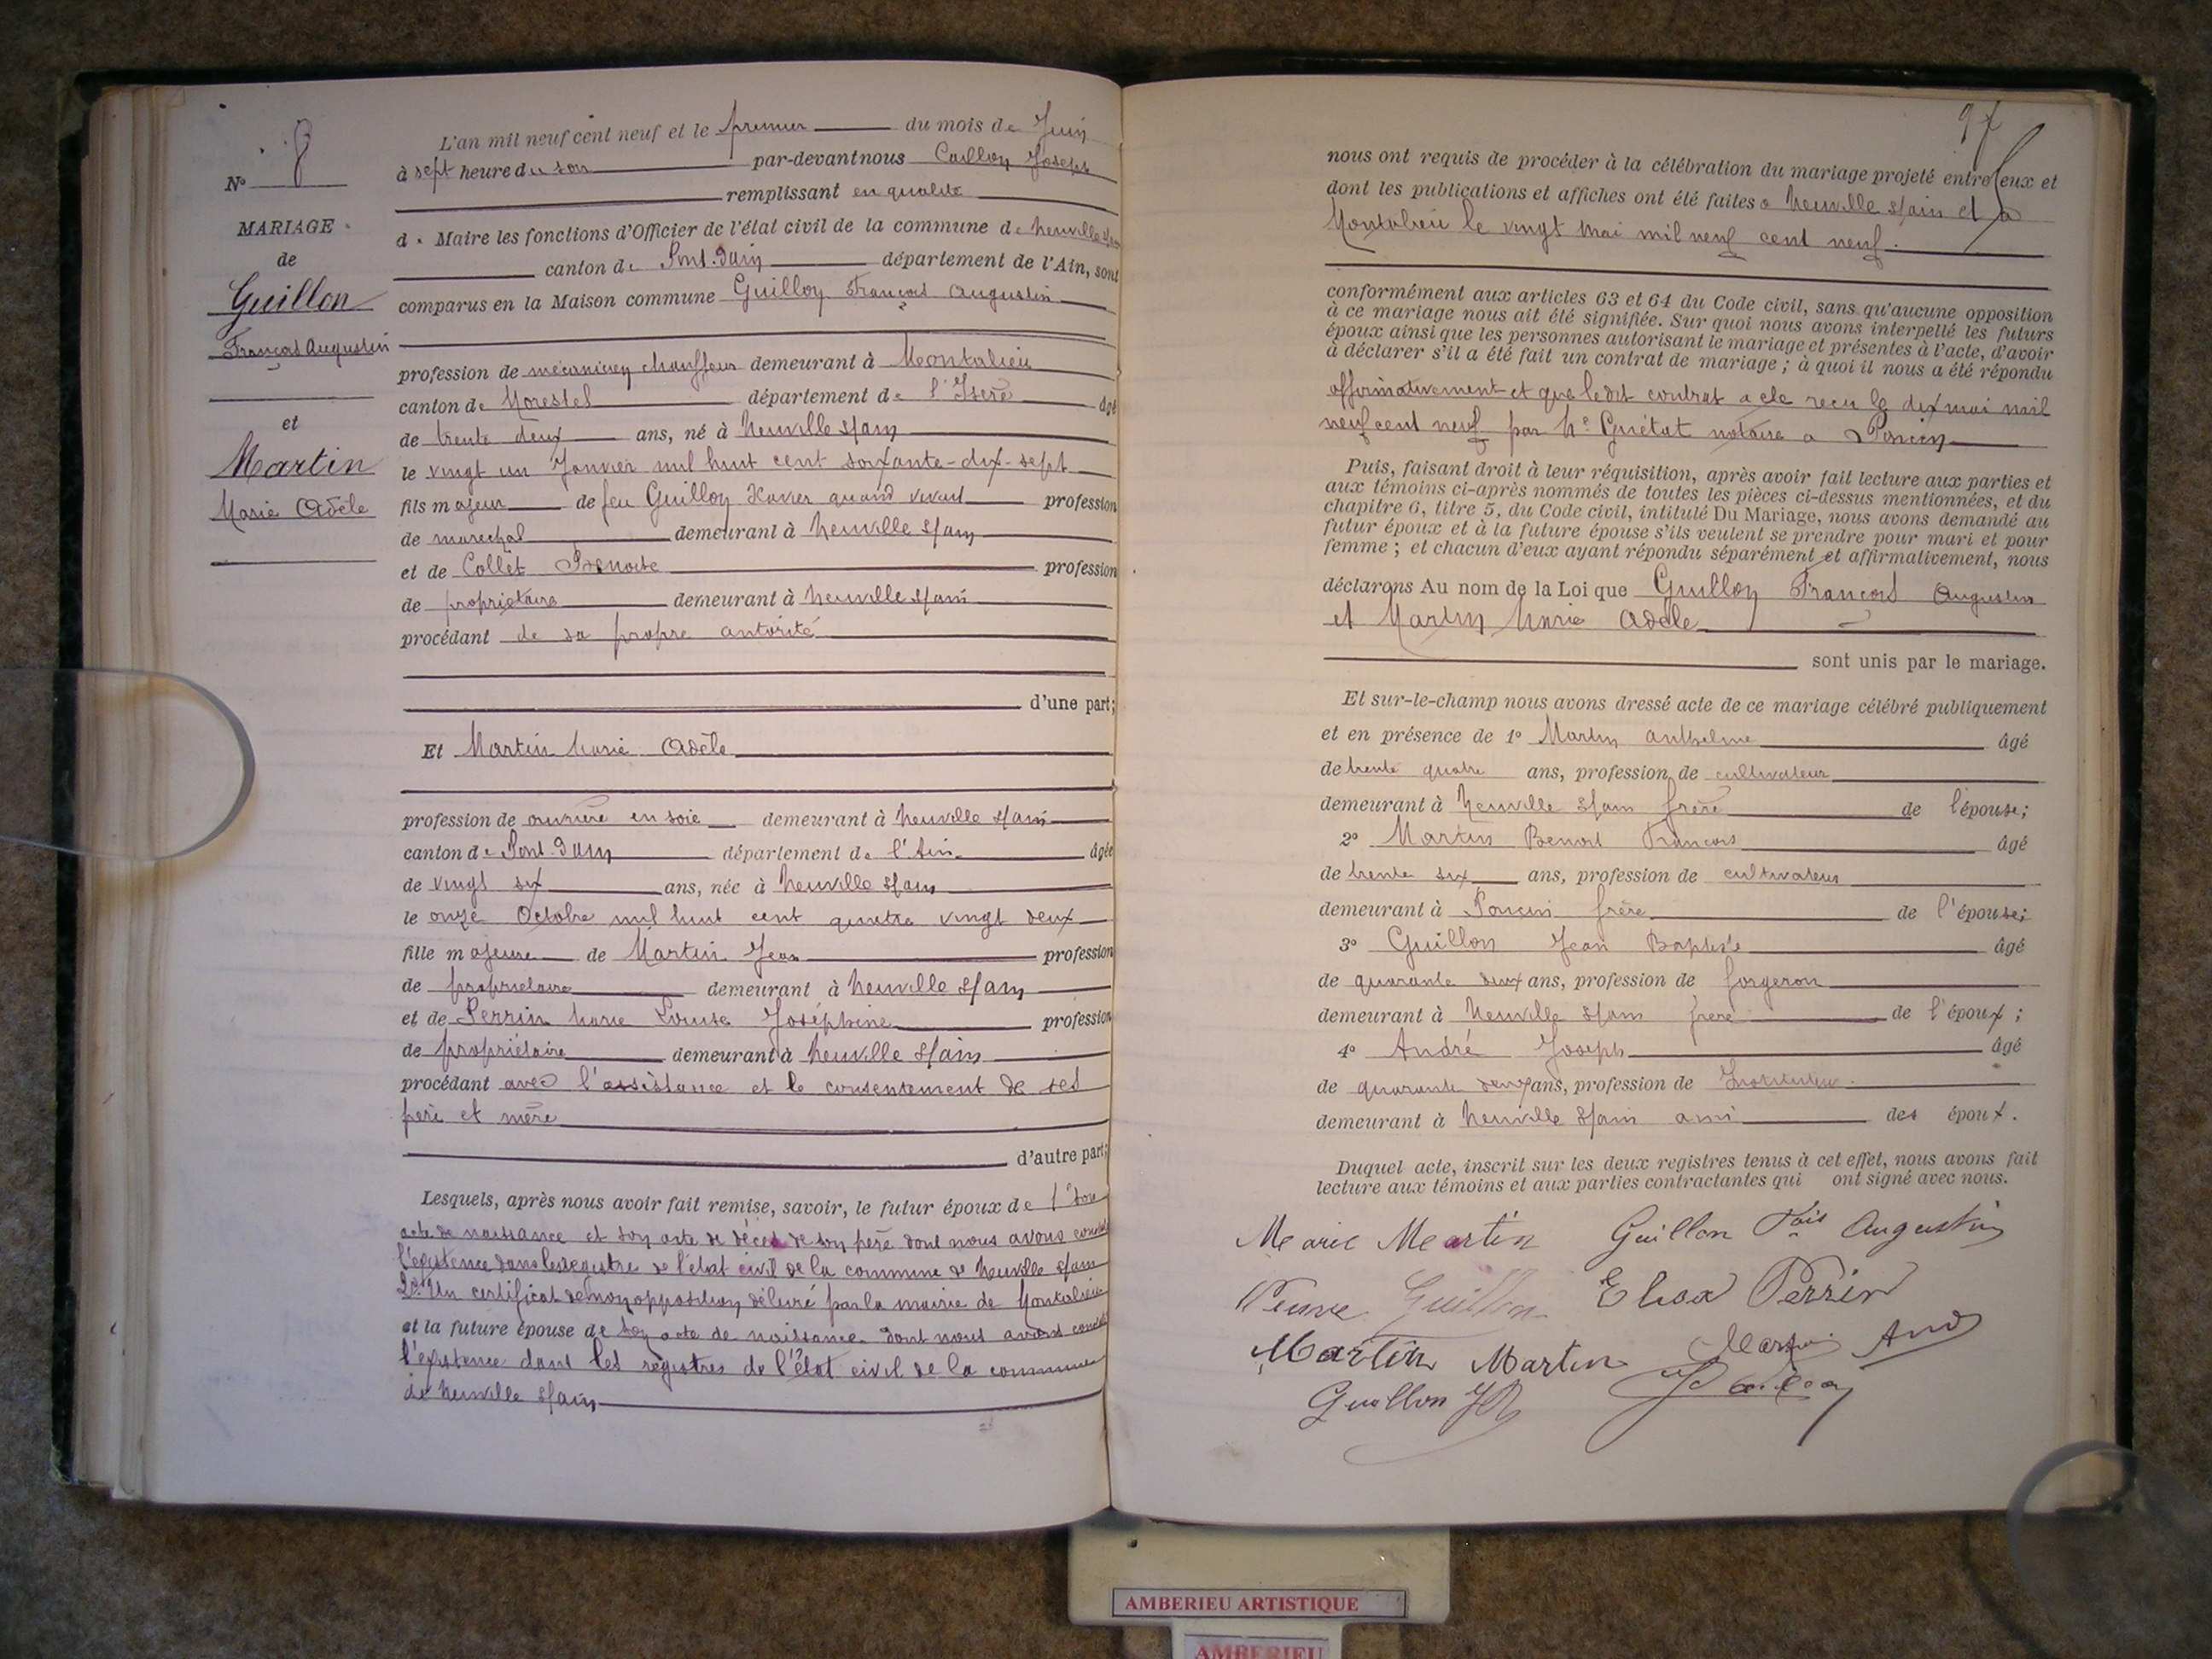 N° 8
MARIAGE
de
Guillon
François Augustin
et
Martin
Marie Adèle
L'an mil neuf cent neuf et le premier du mois de Juin
à sept heure du soir par-devant nous Caillon Joseph
remplissant en qualité
de Maire les fonctions d'Officier de l'état civil de la commune de Neuville s/ain
canton de Pont-d'ain département de l'Ain, sont
comparus en la Maison commune Guillon François Augustin
profession de mécanicien chauffeur demeurant à Montalieu
canton de Morestel département de l'Isère âgé
de trente deux ans, né à Neuville s/ain
le vingt un Janvier mil huit cent soixante-dix-sept
fils majeur de feu Guillon Xavier quand vivait profession
de marechal demeurant à Neuville s/ain
et de Collet Benoite profession
de propriétaire demeurant à Neuville s/ain
procédant de sa propre autorité
d'une part;
Et Martin Marie Adèle
profession de ouvrière en soie demeurant à Neuville s/ain
canton de Pont-d'ain département de l'Ain âgée
de vingt six ans, née à Neuville s/ain
le onze Octobre mil huit cent quatre vingt deux
fille majeure de Martin Jean profession
de propriétaire demeurant à Neuville s/ain
et de Perrin Marie Louise Joséphine profession
de propriétaire demeurant à Neuville s/ain
procédant avec l'assistance et le consentement de ses
père et mère
d'autre part;
Lesquels, après nous avoir fait remise, savoir, le futur époux de 1° son
acte de naissance et son acte de décès de son père dont nous avons constaté
l'existence dans les registre de l'état civil de la commune de Neuville s/ain
2° Un certificat de non opposition délivré par la mairie de Montalieu
et la future épouse de son acte de naissance dont nous avons constaté
l'existence dans les registres de l'état civil de la commune
de Neuville s/ain
97
nous ont requis de procéder à la célébration du mariage projeté entre eux et
dont les publications et affiches ont été faites à Neuville s/ain et à
Montalieu le vingt Mai mil neuf cent neuf.
conformément aux articles 63 et 64 du Code civil, sans qu'aucune opposition
à ce mariage nous ait été signifiée. Sur quoi nous avons interpellé les futurs
époux ainsi que les personnes autorisant le mariage et présentes à l'acte, d'avoir
à déclarer s'il a été fait un contrat de mariage ; à quoi il nous a été répondu
affirmativement et que le dit contrat a été reçu le dix mai mil
neuf cent neuf par Me Guétat notaire à Poncin
Puis, faisant droit à leur réquisition, après avoir fait lecture aux parties et
aux témoins ci-après nommés de toutes les pièces ci-dessus mentionnées, et du
chapitre 6, titre 5, du Code civil, intitulé Du Mariage, nous avons demandé au
futur époux et à la future épouse s'ils veulent se prendre pour mari et pour
femme ; et chacun d'eux ayant répondu séparément et affirmativement, nous
déclarons Au nom de la Loi que Guillon François Augustin
et Martin Marie Adèle
sont unis par le mariage.
Et sur-le-champ nous avons dressé acte de ce mariage célébré publiquement
et en présence de 1° Martin Anthelme âgé
de trente quatre ans, profession de cultivateur
demeurant à Neuville s/ain frère de l'épouse;
2° Martin Benoit François âgé
de trente six ans, profession de cultivateur
demeurant à Poncin frère de l'épouse;
3° Guillon Jean Baptiste âgé
de quarante deux ans, profession de forgeron
demeurant à Neuville s/ain frère de l'époux ;
4° André Joseph âgé
de quarante deux ans, profession de Instituteur
demeurant à Neuville s/ain ami des époux.
Duquel acte, inscrit sur les deux registres tenus à cet effet, nous avons fait
lecture aux témoins et aux parties contractantes qui ont signé avec nous.
Marie Martin Guillon Fois Augustin
Veuve Guillon Elisa Perrin
Martin Martin Martin And
Guillon JB
AMBERIEU ARTISTIQUE
AMBERIEU